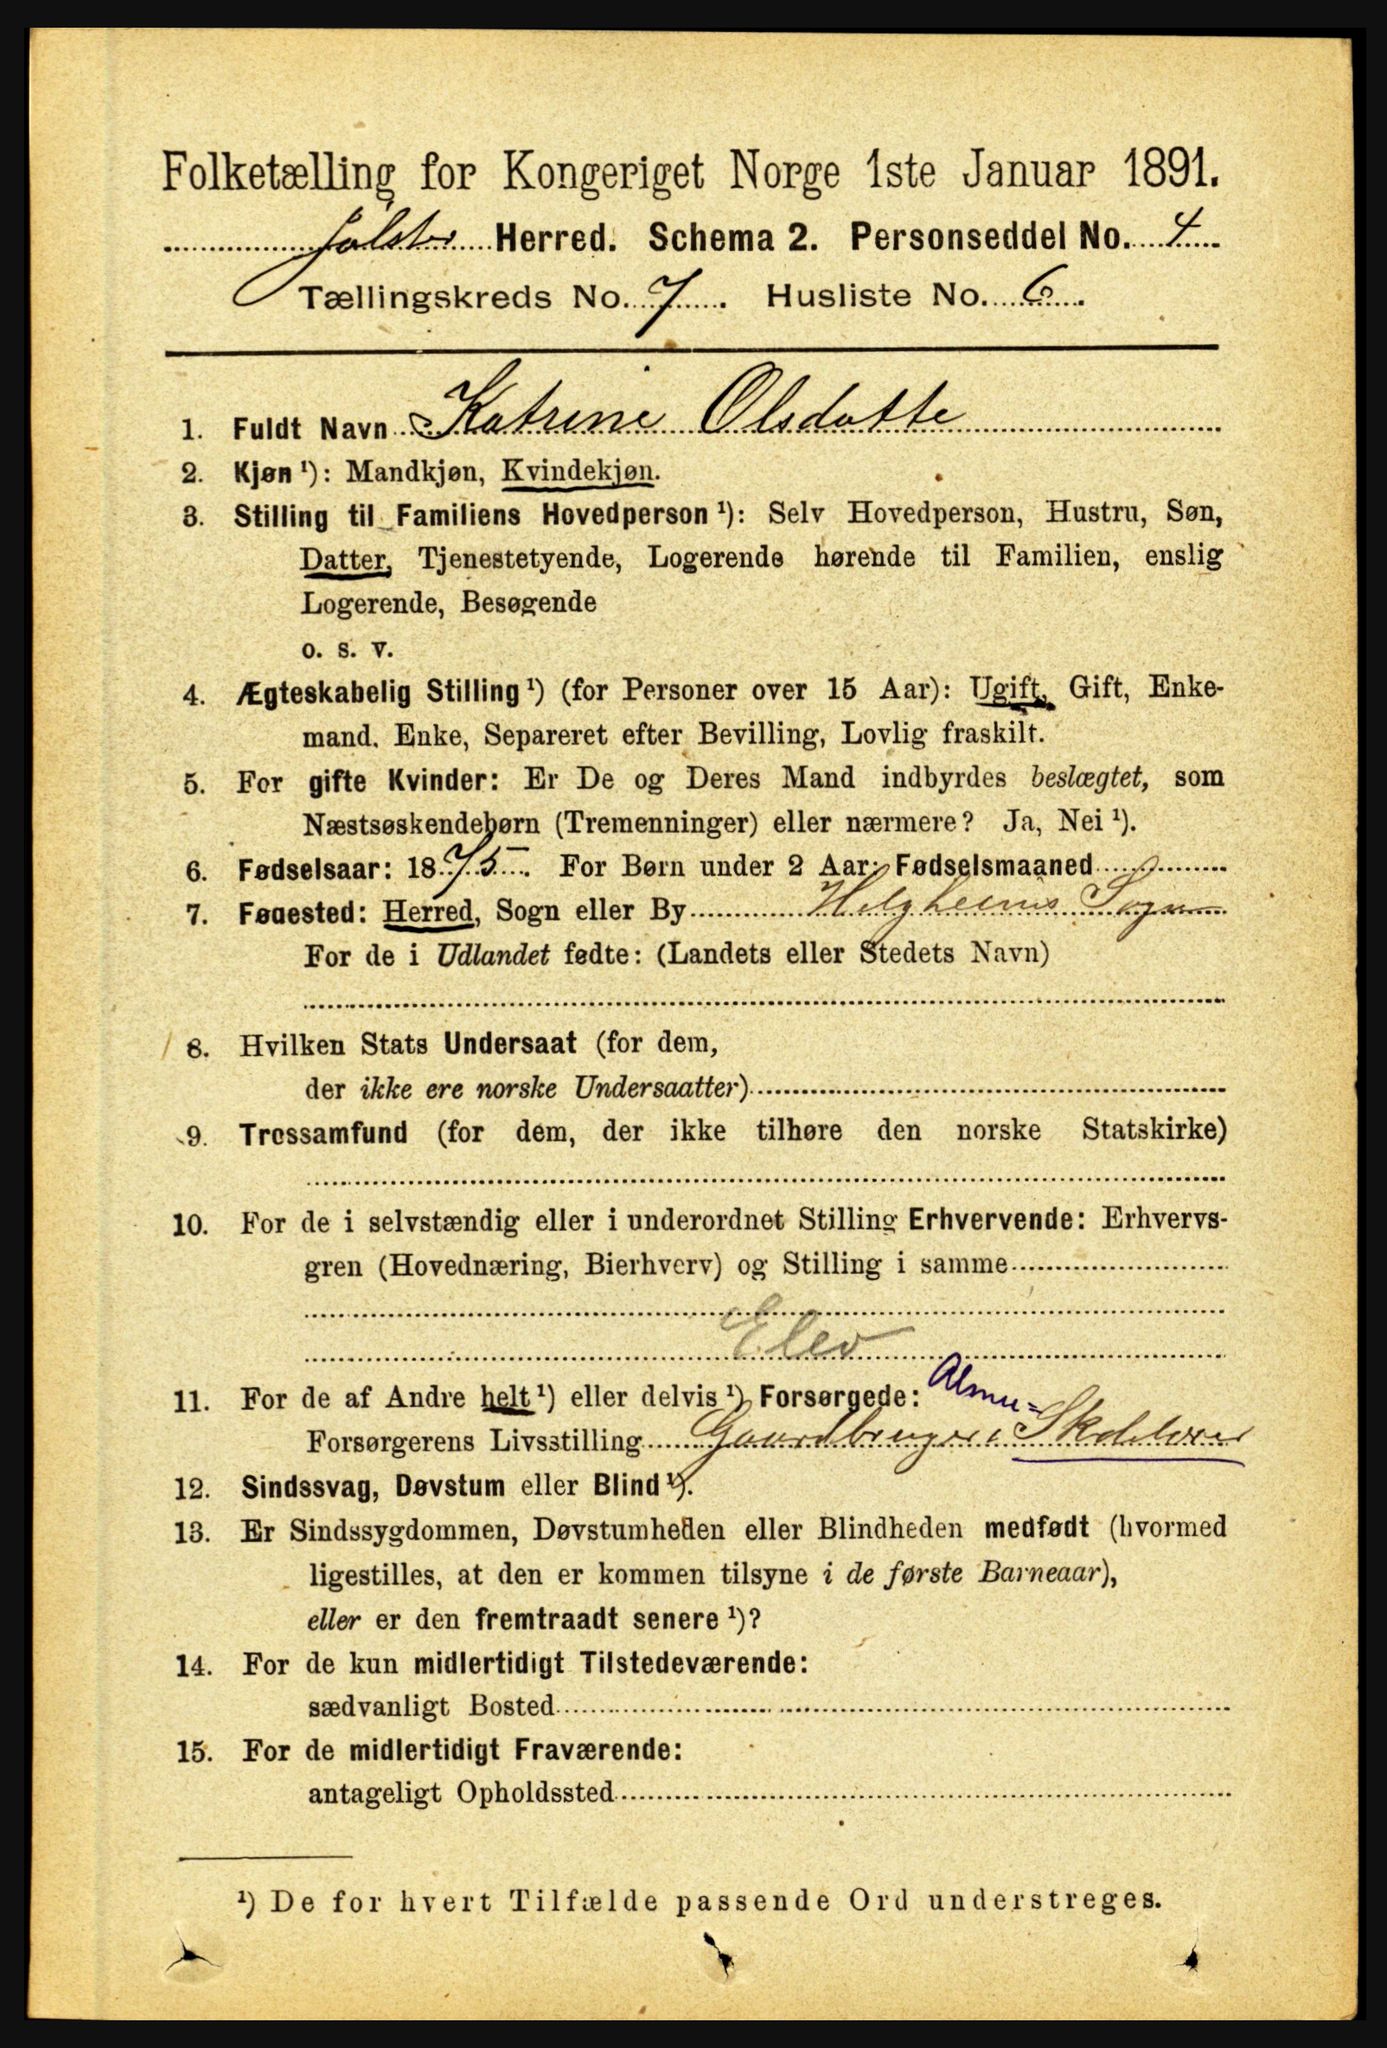 Folketælling for Kongeriget Norge 1ste Januar 1891.
Jølster Herred. Schema 2. Personseddel No. 4
Tællingskreds No. 7. Husliste No. 6.
1. Fuldt Navn Katrine Olsdatte
2. Kjøn ¹): Mandkjøn, Kvindekjøn.
3. Stilling til Familiens Hovedperson ¹): Selv Hovedperson, Hustru, Søn,
Datter, Tjenestetyende, Logerende hørende til Familien, enslig
Logerende, Besøgende
o. s. v.
4. Ægteskabelig Stilling ¹) (for Personer over 15 Aar): Ugift, Gift, Enke-
mand. Enke, Separeret efter Bevilling, Lovlig fraskilt.
5. For gifte Kvinder: Er De og Deres Mand indbyrdes beslægtet, som
Næstsøskendebørn (Tremenninger) eller nærmere? Ja, Nei ¹).
6. Fødselsaar: 1875. For Børn under 2 Aar: Fødselsmaaned
7. Fødested: Herred, Sogn eller By Helgheims Sogn
For de i Udlandet fødte: (Landets eller Stedets Navn)
8. Hvilken Stats Undersaat (for dem,
der ikke ere norske Undersaatter)
9. Trossamfund (for dem, der ikke tilhøre den norske Statskirke)
10. For de i selvstændig eller i underordnet Stilling Erhvervende: Erhvervs-
gren (Hovednæring, Bierhverv) og Stilling i samme
Elev
11. For de af Andre helt ¹) eller delvis ¹) Forsørgede: Almu=
Forsørgerens Livsstilling Gaardbruger Skolelærer
12. Sindssvag, Døvstum eller Blind ¹).
13. Er Sindssygdommen, Døvstumheden eller Blindheden medfødt (hvormed
ligestilles, at den er kommen tilsyne i de første Barneaar),
eller er den fremtraadt senere ¹)?
14. For de kun midlertidigt Tilstedeværende:
sædvanligt Bosted
15. For de midlertidigt Fraværende:
antageligt Opholdssted
¹) De for hvert Tilfælde passende Ord understreges.